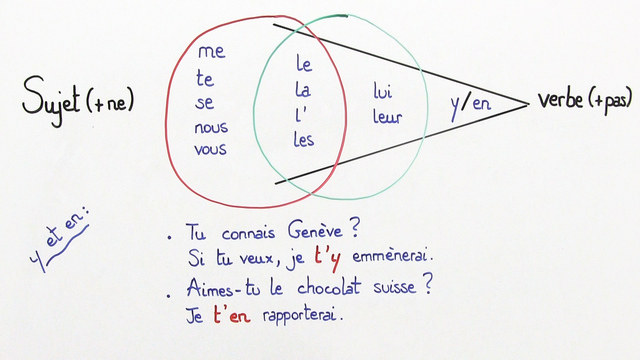 Sujet (+ne)
me
te
se
nous
vous
le
la
l'
les
lui
leur
y/en
verbe (+pas)
y et en:
. Tu connais Genève ?
Si tu veux, je t'y emmènerai.
. Aimes-tu le chocolat suisse ?
Je t'en rapporterai.